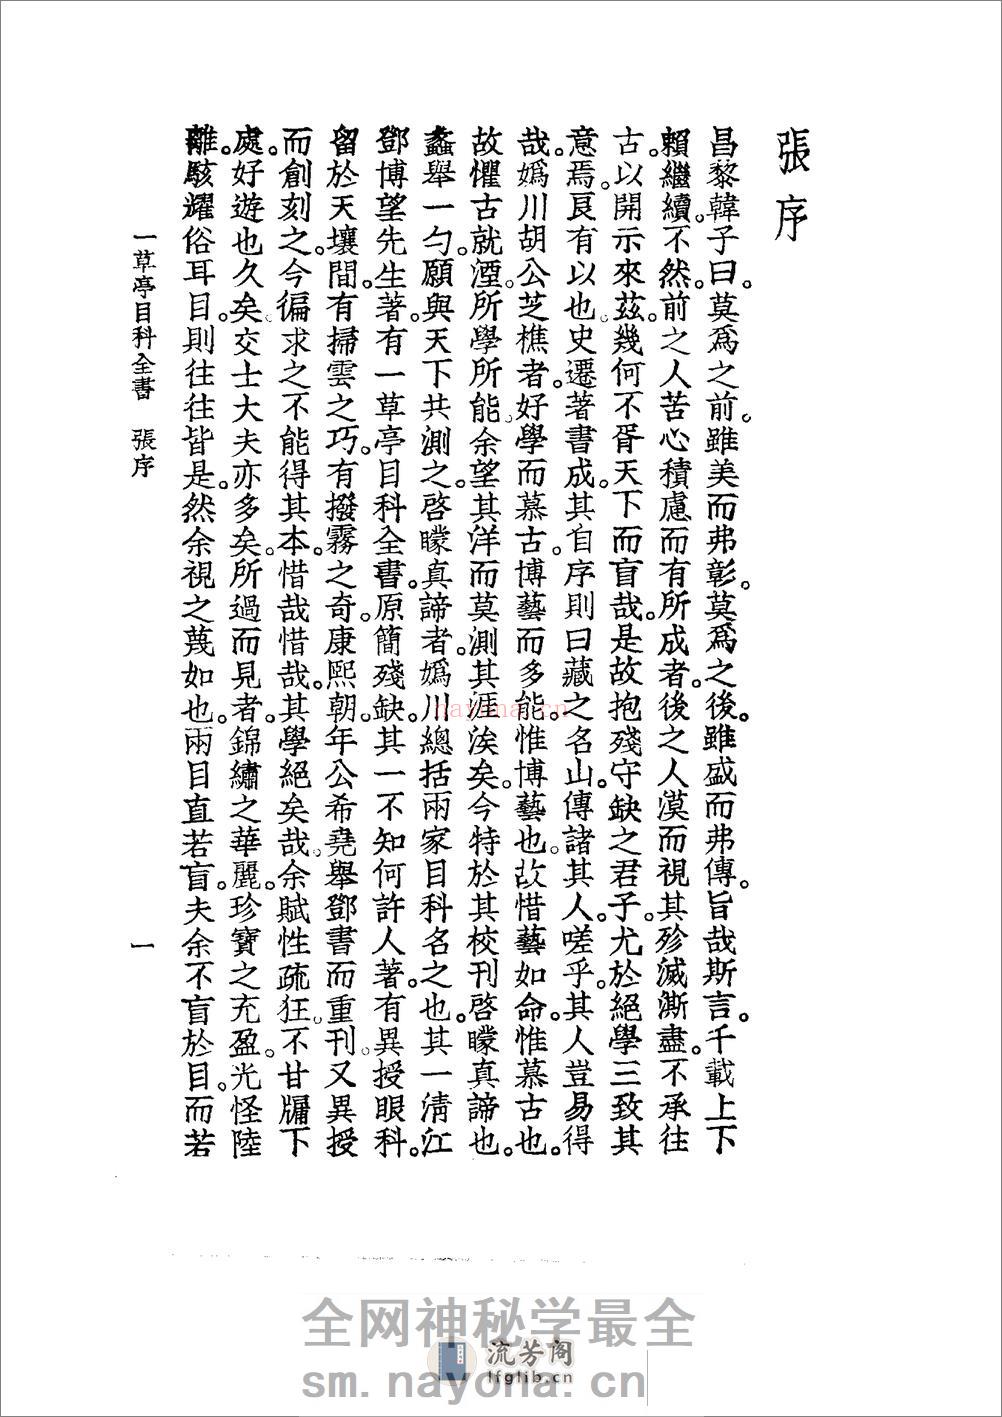 張序
昌黎韓子曰。莫爲之前。雖美而弗彰。莫爲之後。雖盛而弗傳。旨哉斯言。千載上下
賴繼續。不然。前之人苦心積慮而有所成者。後之人漠而視其殄滅澌盡。不承往
古。以開示來茲。幾何不胥天下而盲哉。是故抱殘守缺之君子。尤於絕學三致其
意焉。良有以也。史遷著書成。其自序則曰藏之名山。傳諸其人。嗟乎。其人豈易得
哉。嬀川胡公芝樵者。好學而慕古。博藝而多能。惟博藝也。故惜藝如命。惟慕古也。
故懼古就湮。所學所能。余望其洋而莫測其涯涘矣。今特於其校刊啓矇真諦也。
蠡舉一勺。願與天下共測之。啓矇真諦者。嬀川總括兩家目科名之也。其一淸江
鄧博望先生著。有一草亭目科全書。原簡殘缺。其一不知何許人著。有異授眼科。
留於天壤間。有掃雲之巧。有撥霧之奇。康熙朝。年公希堯舉鄧書而重刊。又異授
而創刻之。今徧求之不能得其本。惜哉惜哉。其學絕矣哉。余賦性疏狂。不甘牖下
處。好遊也久矣。交士大夫亦多矣。所過而見者。錦繡之華麗。珍寶之充盈。光怪陸
離。駭耀俗耳目。則往往皆是。然余視之蔑如也。兩目直若盲。夫余不盲於目。而若
一草亭目科全書 張序
一
nayona.cn
全网神秘学最全
流芳阁
lfglib.cn
sm.nayona.cn